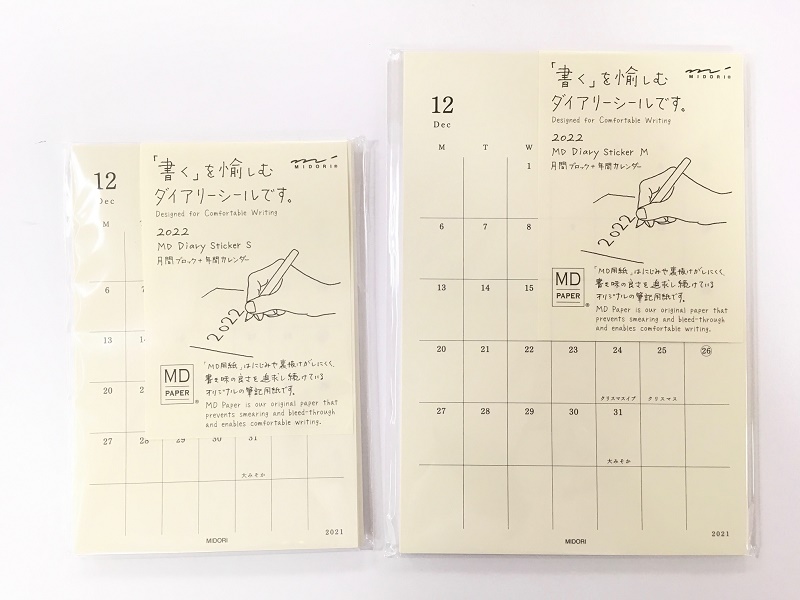 12
Dec
M
6
7
13
14
20
21
27
28
29
30
31
大みそか
2021
MIDORI
「書く」を愉しむ
MIDORI
ダイアリーシールです。
Designed for Comfortable Writing
2022
MD Diary Sticker S
月間ブロック+年間カレンダー
2022
MD
PAPER
®
「MD用紙」はにじみや裏抜けがしにくく、
書き味の良さを追求し続けている
オリジナルの筆記用紙です。
MD Paper is our original paper that
prevents smearing and bleed-through
and enables comfortable writing.
12
Dec
M T W
1
6 7 8
13 14 15
20 21 22 23 24 25 26
クリスマスイブ クリスマス
27 28 29 30 31
大みそか
2021
MIDORI
「書く」を愉しむ
MIDORI
ダイアリーシールです。
Designed for Comfortable Writing
2022
MD Diary Sticker M
月間ブロック+年間カレンダー
2022
MD
PAPER
®
「MD用紙」はにじみや裏抜けがしにくく、
書き味の良さを追求し続けている
オリジナルの筆記用紙です。
MD Paper is our original paper that
prevents smearing and bleed-through
and enables comfortable writing.